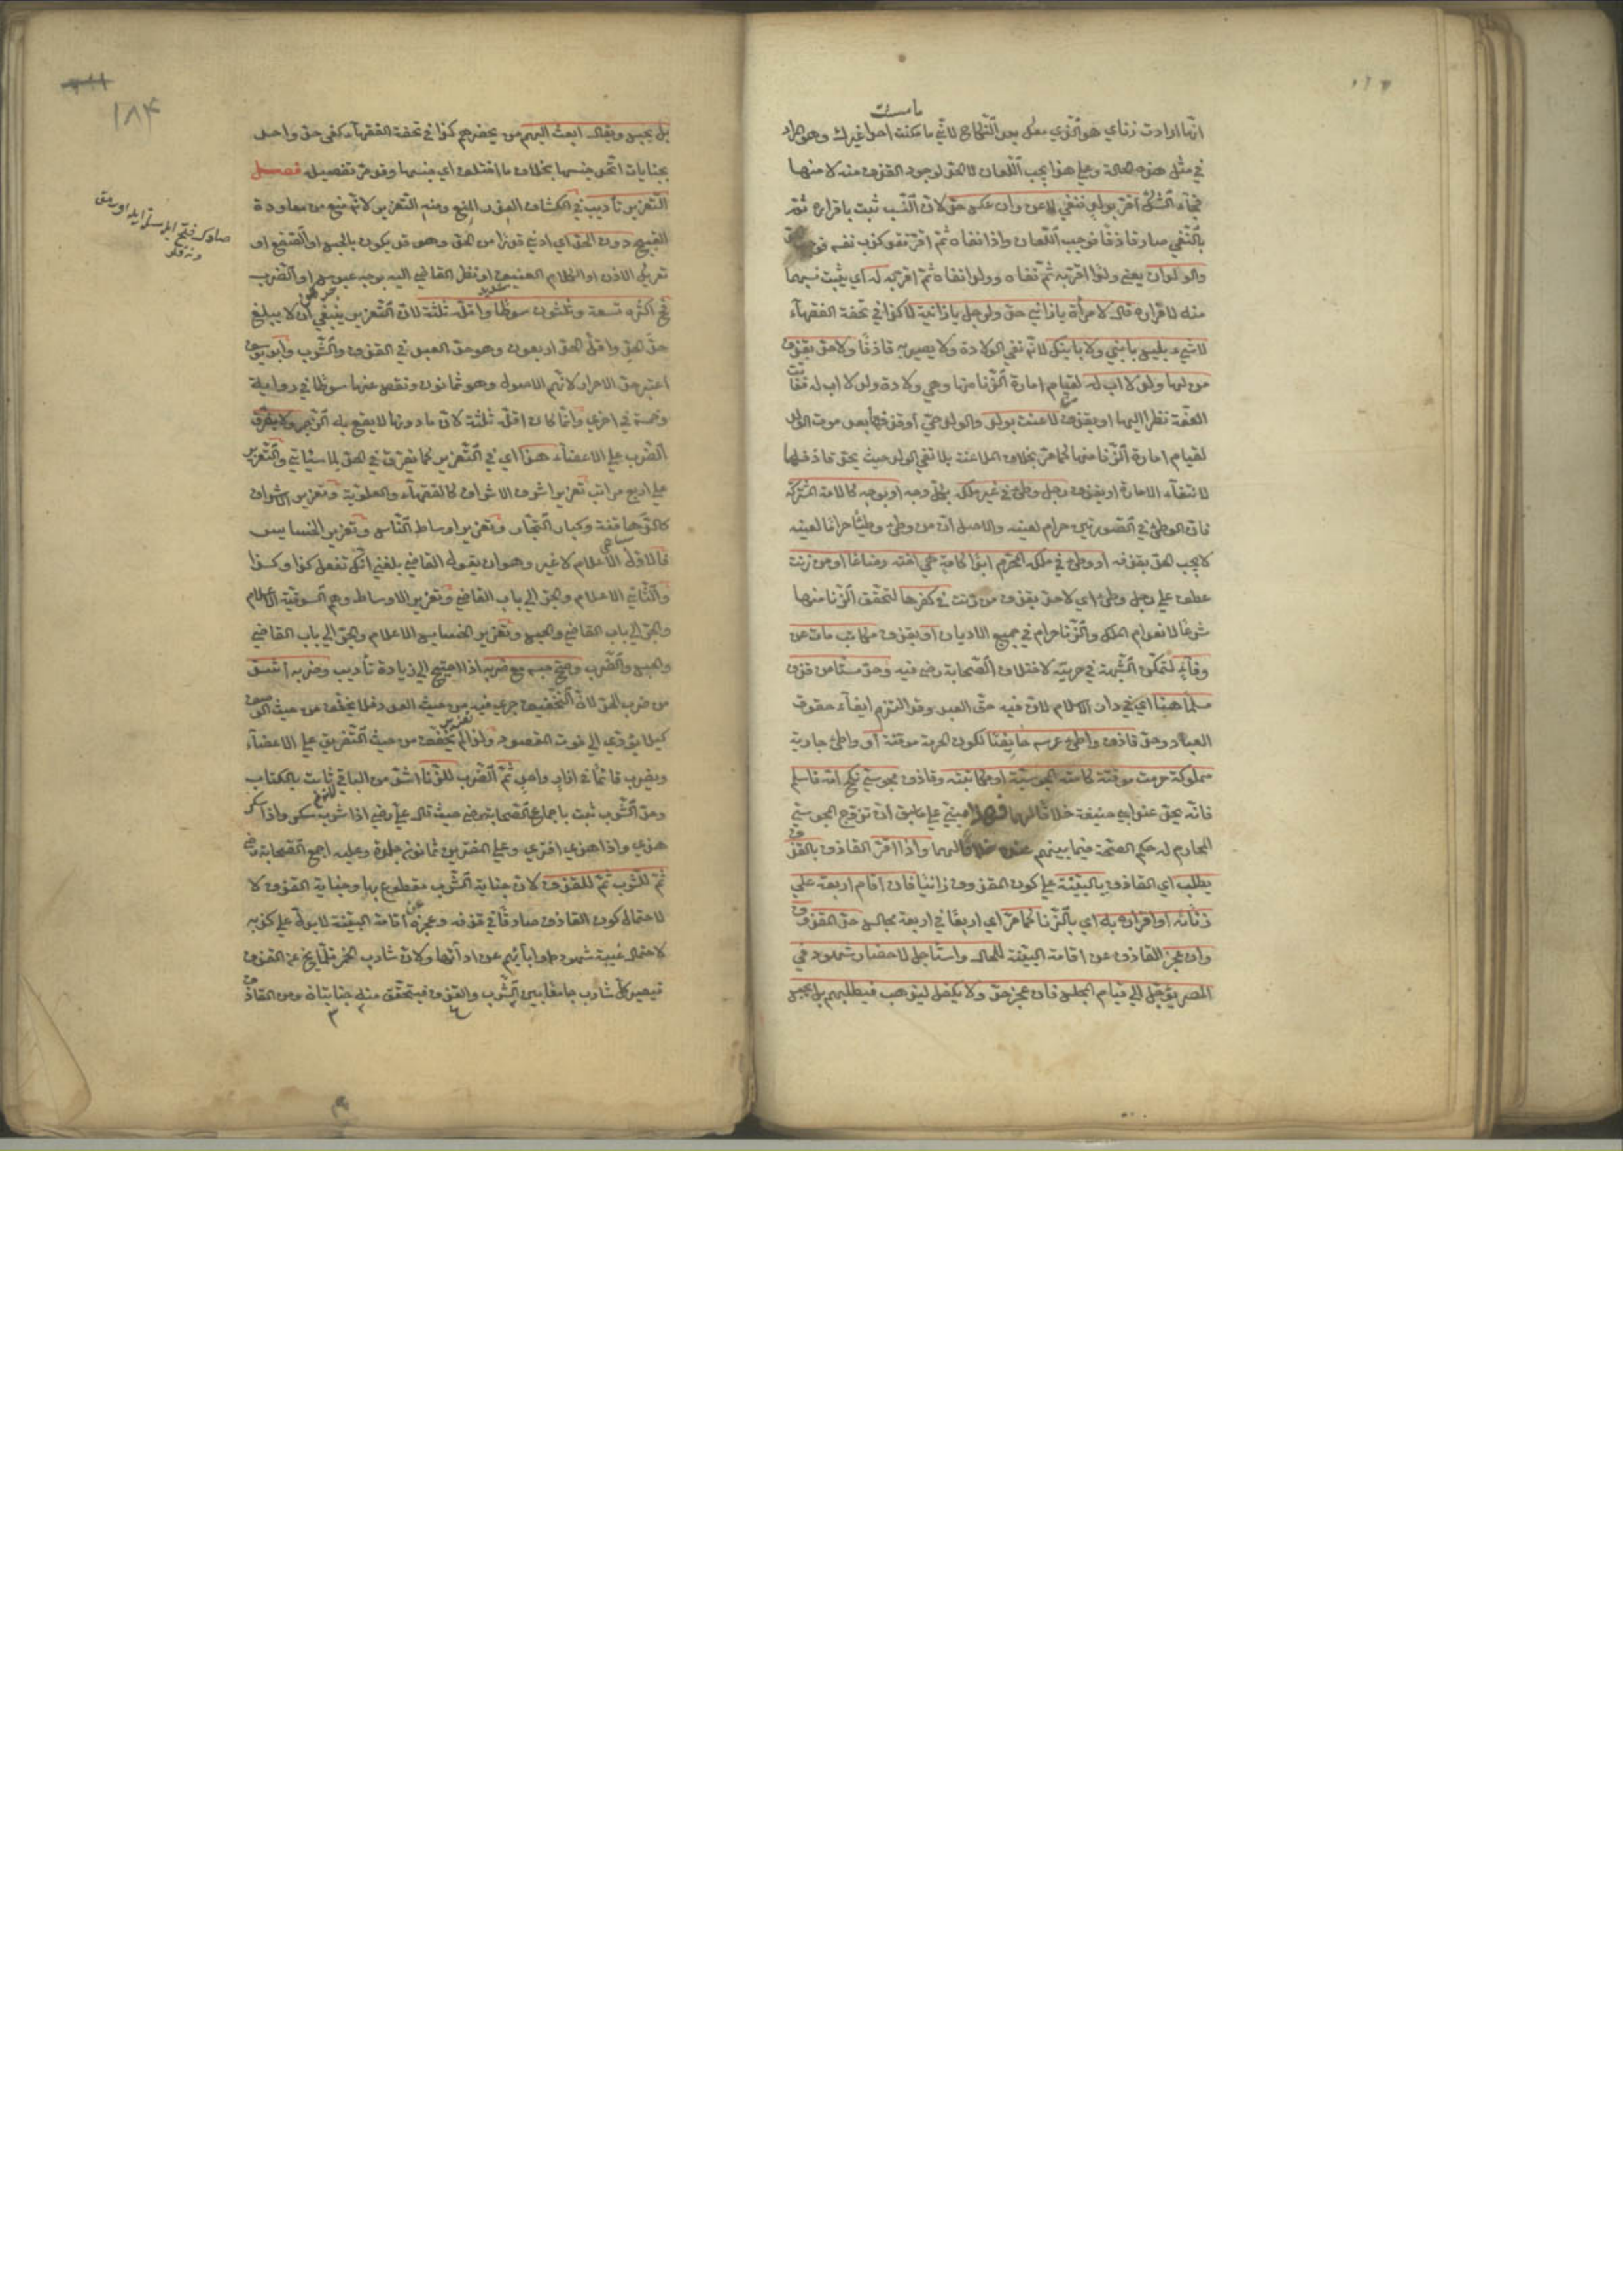 انّما ارادت زناي هو الّذي معك بعد النّكاح لانّي ما مكنت احدا غيرك وهو المراد
ما سبقت
في مثل هذه الحالة وعلى هذا يجب اللّعان لا الحدّ لوجود القذف منه لا منها
فجاء الشّكّ اقرّ بولد فنفي لاعن وان عكس حدّ لانّ النّسب ثبت باقراره ثمّ
بالنّفي صار قاذفًا فوجب اللّعان واذا نفاه ثمّ اقرّ فقد كذب نفسه فوجب
والولدان يعني ولدًا اقرّ به ثمّ نفاه وولدا نفاه ثمّ اقرّ به له اي يثبت نسبهما
منه لاقراره قال لامرأة يا زاني حدّ ولرجل يا زانية لا كذا في تحفة الفقهاء
لا شيء بليس بابني ولا بابنك لانّه نفي الولادة ولا يصير به قاذفًا ولا حدّ بقذف
من لها ولد لا اب له لقيام امارة الزّنا منها وهي ولادة ولد لا اب له ففاتت
العفّة نظرا اليها او بقذف من لاعنت بولد والولد حيّ او قذفها بعد موت الولد
لقيام امارة الزّنا منها كما مرّ بخلاف الملاعنة بلا نفي الولد حيث يحدّ قاذفها
لانتفاء الامارة او بقذف رجل وطئ في غير ملكه بكلّ وجه او بوجه كالامة المشتركة
فانّ الوطئ في الصّورتين حرام لعينه والاصل انّ من وطئ وطئًا حرامًا لعينه
لا يجب الحدّ بقذفه او وطئ في ملكه المحرّم ابدًا كامة هي اخته رضاعًا او من زنت
عطف على رجل وطئ اي لا حدّ بقذف من زنت في كفرها لتحقّق الزّنا منها
شرعًا لانعدام الملك والزّنا حرام في جميع الاديان او بقذف مكاتب مات عن
وفاء لتمكّن الشّبهة في حريّته لاختلاف الصّحابة رضي فيه وحدّ مستأمن قذف
مسلمًا هنا اي في دار الاسلام لانّ فيه حقّ العبد وقد التزم ايفاء حقوق
العباد وحدّ قاذف واطئ عرسه حايضًا لكون الحرمة موقتة او واطئ جارية
مملوكة حرمت موقتة كامته المجوسيّة او مكاتبته وقاذف مجوسيّ نكح امّه فاسلم
فانّه يحدّ عند ابي حنيفة خلافًا لهما مبنيّ على ما سبق انّ تزوّج المجوسيّ
المحارم له حكم الصّحّة فيما بينهم عنده خلافًا لهما واذا اقرّ القاذف بالقذف
يطلب اي القاذف بالبيّنة على كون المقذوف زانيًا فان اقام اربعة على
زناه او اقراره به اي بالزّنا كما مرّ اي اربعًا في اربعة مجالس حدّ المقذوف
وان عجز القاذف عن اقامة البيّنة للحال واستأجل لاحضار شهود في
المصر يؤجّل الى قيام المجلس فان عجز حدّ ولا يكفل ليذهب فيطلبهم بل يحبس
١٨٤
بل يحبس ويقال ابعث اليهم من يحضرهم كذا في تحفة الفقهاء كفى حدّ واحد
بجنايات اتّحد جنسها بخلاف ما اختلف اي جنسها وقد مرّ تفصيله فصل
التّعزير تأديب في الكشّاف العزر المنع ومنه التّعزير لانّه منع من معاودة
القبيح دون الحدّ اي ادنى قدرًا من الحدّ وهو قد يكون بالحبس او الصّفع او
تعريك الاذن او الكلام العنيف او نظر القاضي اليه بوجه عبوس او الضّرب
فح اكثره تسعة وثلثون سوطًا واقلّه ثلثة لانّ التّعزير ينبغي ان لا يبلغ
حدّ الحدّ واقلّ الحدّ اربعون وهو حدّ العبد في القذف والشّرب وابو يوسف
اعتبر حدّ الاحرار لانّهم الاصول وهو ثمانون ونقص عنها سوطًا في رواية
وخمسة في اخرى وانّما كان اقلّه ثلثة لانّ ما دونها لا يقع به الزّجر ولا يفرّق
الضّرب على الاعضاء هذا اي في التّعزير كما يفرّق في الحدّ لما سيأتي والتّعزير
على اربع مراتب تعزير اشرف الاشراف كالفقهاء والعلويّة وتعزير الاشراف
كالدّهاقنة وكبار التّجّار وتعزير اوساط النّاس وتعزير الخسايس
فالاوّل الاعلام لا غير وهو ان يقول القاضي بلغني انّك تفعل كذا وكذا
والثّاني الاعلام والجرّ الى باب القاضي وتعزير الاوساط وهم السّوقيّة الاعلام
والجرّ الى باب القاضي والحبس وتعزير الخسايس الاعلام والجرّ الى باب القاضي
والحبس والضّرب وصحّ حبسه مع ضربه اذا احتيج الى زيادة تأديب وضربه اشدّ
من ضرب الحدّ لانّ التّخفيف جرى فيه من حيث العدد فلا يخفّف من حيث الوصف
كيلا يؤدّي الى فوت المقصود ولذا لم يخفّف من حيث التّفريق على الاعضاء
ويضرب قائمًا في ازار واحد ثمّ الضّرب للزّنا اشدّ من الباقي ثابت بالكتاب
وحدّ الشّرب ثبت باجماع الصّحابة رضي حيث قال علي رضي اذا شرب سكر واذا سكر
هذي واذا هذي افتري وعلى المفترين ثمانون جلدة وعليه اجمع الصّحابة رضي
ثمّ للشّرب ثمّ للقذف لانّ جناية الشّرب مقطوع بها وجناية القذف لا
لاحتمال كون القاذف صادقًا في قذفه وعجزه عن اقامة البيّنة لا يدلّ على كذبه
لاحتمال غيبة شهوده او ابائهم عن ادائها ولانّ شارب الخمر قلّما يخ عن القذف
فيصير كلّ شارب جامعًا بين الشّرب والقذف فيتحقّق منه جنايتان ومن القاذف